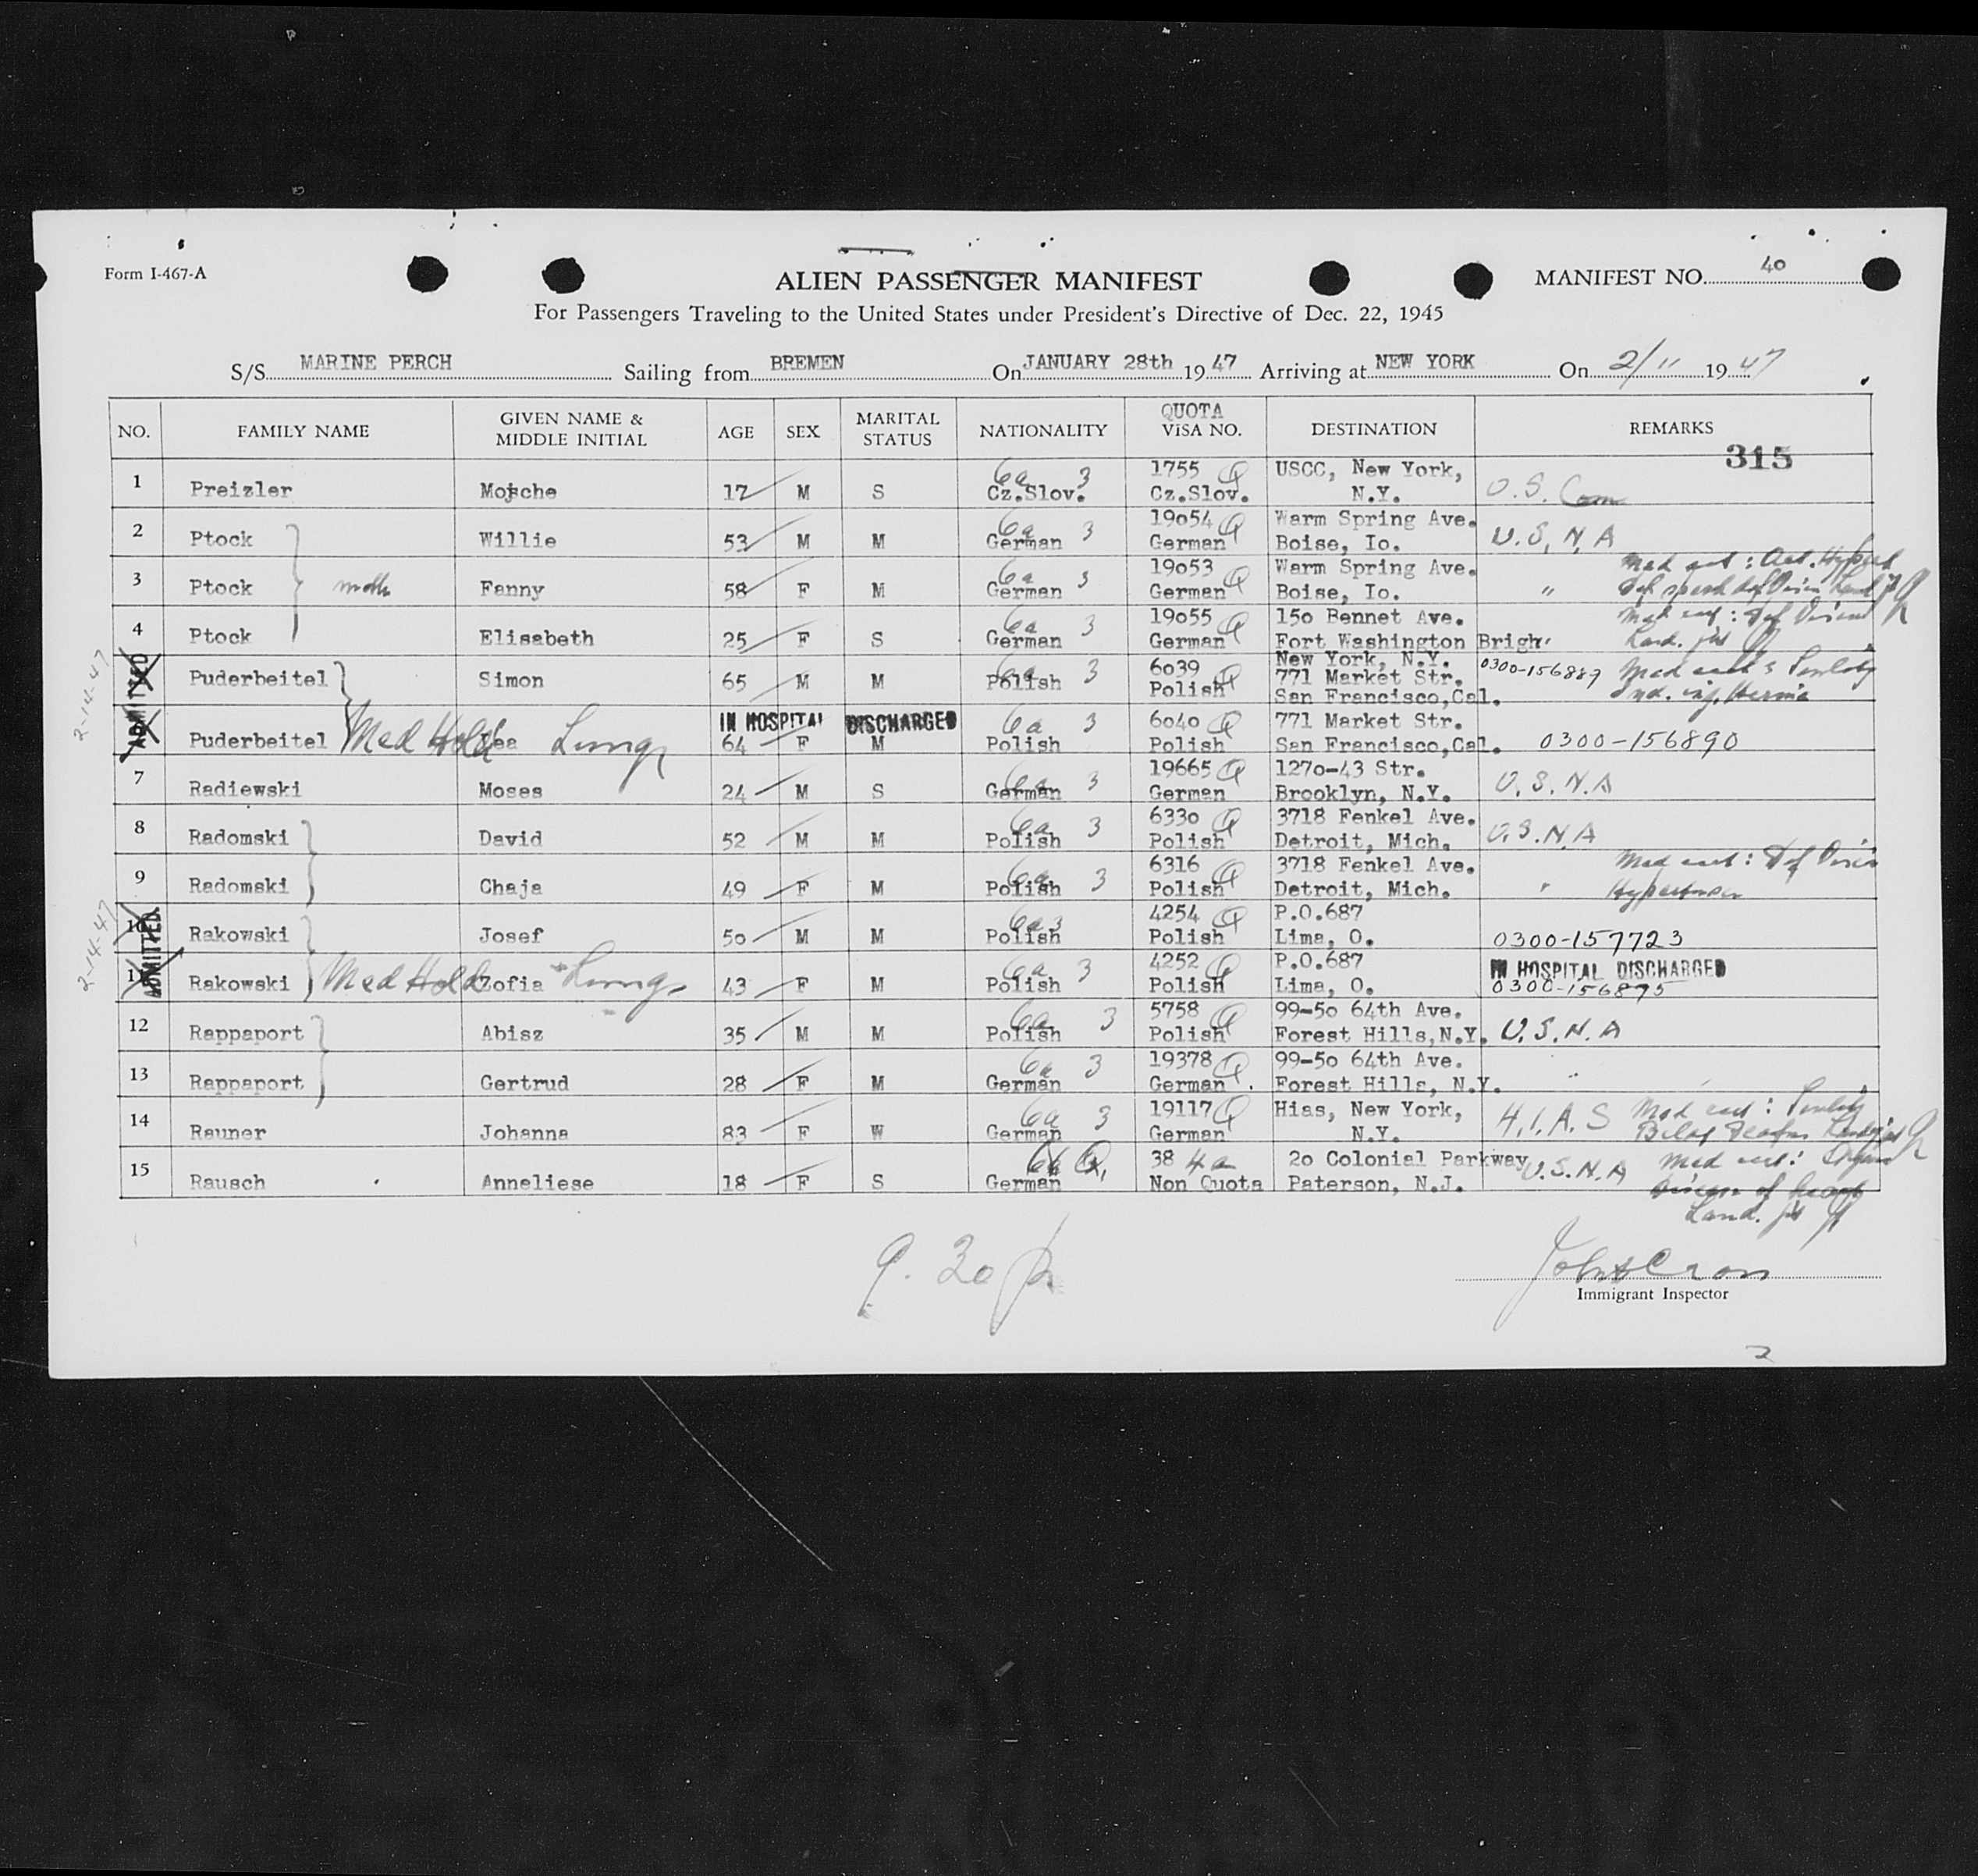 Form I-467-A
ALIEN PASSENGER MANIFEST
MANIFEST NO. 40
For Passengers Traveling to the United States under President's Directive of Dec. 22, 1945
S/S MARINE PERCH Sailing from BREMEN On JANUARY 28th 1947 Arriving at NEW YORK On 2/11 1947
NO. FAMILY NAME GIVEN NAME & MIDDLE INITIAL AGE SEX MARITAL STATUS NATIONALITY QUOTA VISA NO. DESTINATION REMARKS
315
1 Preizler Mojsche 17 M S 6a 3 Cz.Slov. 1755 Q Cz.Slov. USCC, New York, N.Y. U.S. Com
2 Ptock Willie 53 M M 6a 3 German 19054 Q German Warm Spring Ave. Boise, Io. U.S.N.A
3 Ptock Fanny 58 F M 6a 3 German 19053 Q German Warm Spring Ave. Boise, Io. "
4 Ptock Elisabeth 25 F S 6a 3 German 19055 Q German 150 Bennet Ave. Fort Washington Brigh. New York, N.Y.
2-14-47 ADMITTED
Puderbeitel Simon 65 M M 6a 3 Polish 6039 Q Polish 771 Market Str. San Francisco, Cal. 0300-156889
Puderbeitel Med Hold Lungs IN HOSPITAL DISCHARGED 64 F M 6a 3 Polish 6040 Q Polish 771 Market Str. San Francisco, Cal. 0300-156890
7 Radiewski Moses 24 M S 6a 3 German 19665 Q German 1270-43 Str. Brooklyn, N.Y. U.S.N.A
8 Radomski David 52 M M 6a 3 Polish 6330 Q Polish 3718 Fenkel Ave. Detroit, Mich. U.S.N.A
9 Radomski Chaja 49 F M 6a 3 Polish 6316 Q Polish 3718 Fenkel Ave. Detroit, Mich. "
2-14-47 ADMITTED
10 Rakowski Josef 50 M M 6a 3 Polish 4254 Q Polish P.O.687 Lima, O. 0300-157723
11 Rakowski Med Hold Zofia Lungs 43 F M 6a 3 Polish 4252 Q Polish P.O.687 Lima, O. IN HOSPITAL DISCHARGED 0300-156895
12 Rappaport Abisz 35 M M 6a 3 Polish 5758 Q Polish 99-50 64th Ave. Forest Hills, N.Y. U.S.N.A
13 Rappaport Gertrud 28 F M 6a 3 German 19378 Q German 99-50 64th Ave. Forest Hills, N.Y.
14 Rauner Johanna 83 F W 6a 3 German 19117 Q German Hias, New York, N.Y. H.I.A.S
15 Rausch Anneliese 18 F S German 38 4a Non Quota 20 Colonial Parkway Paterson, N.J. U.S.N.A
9.30 p
Immigrant Inspector
2